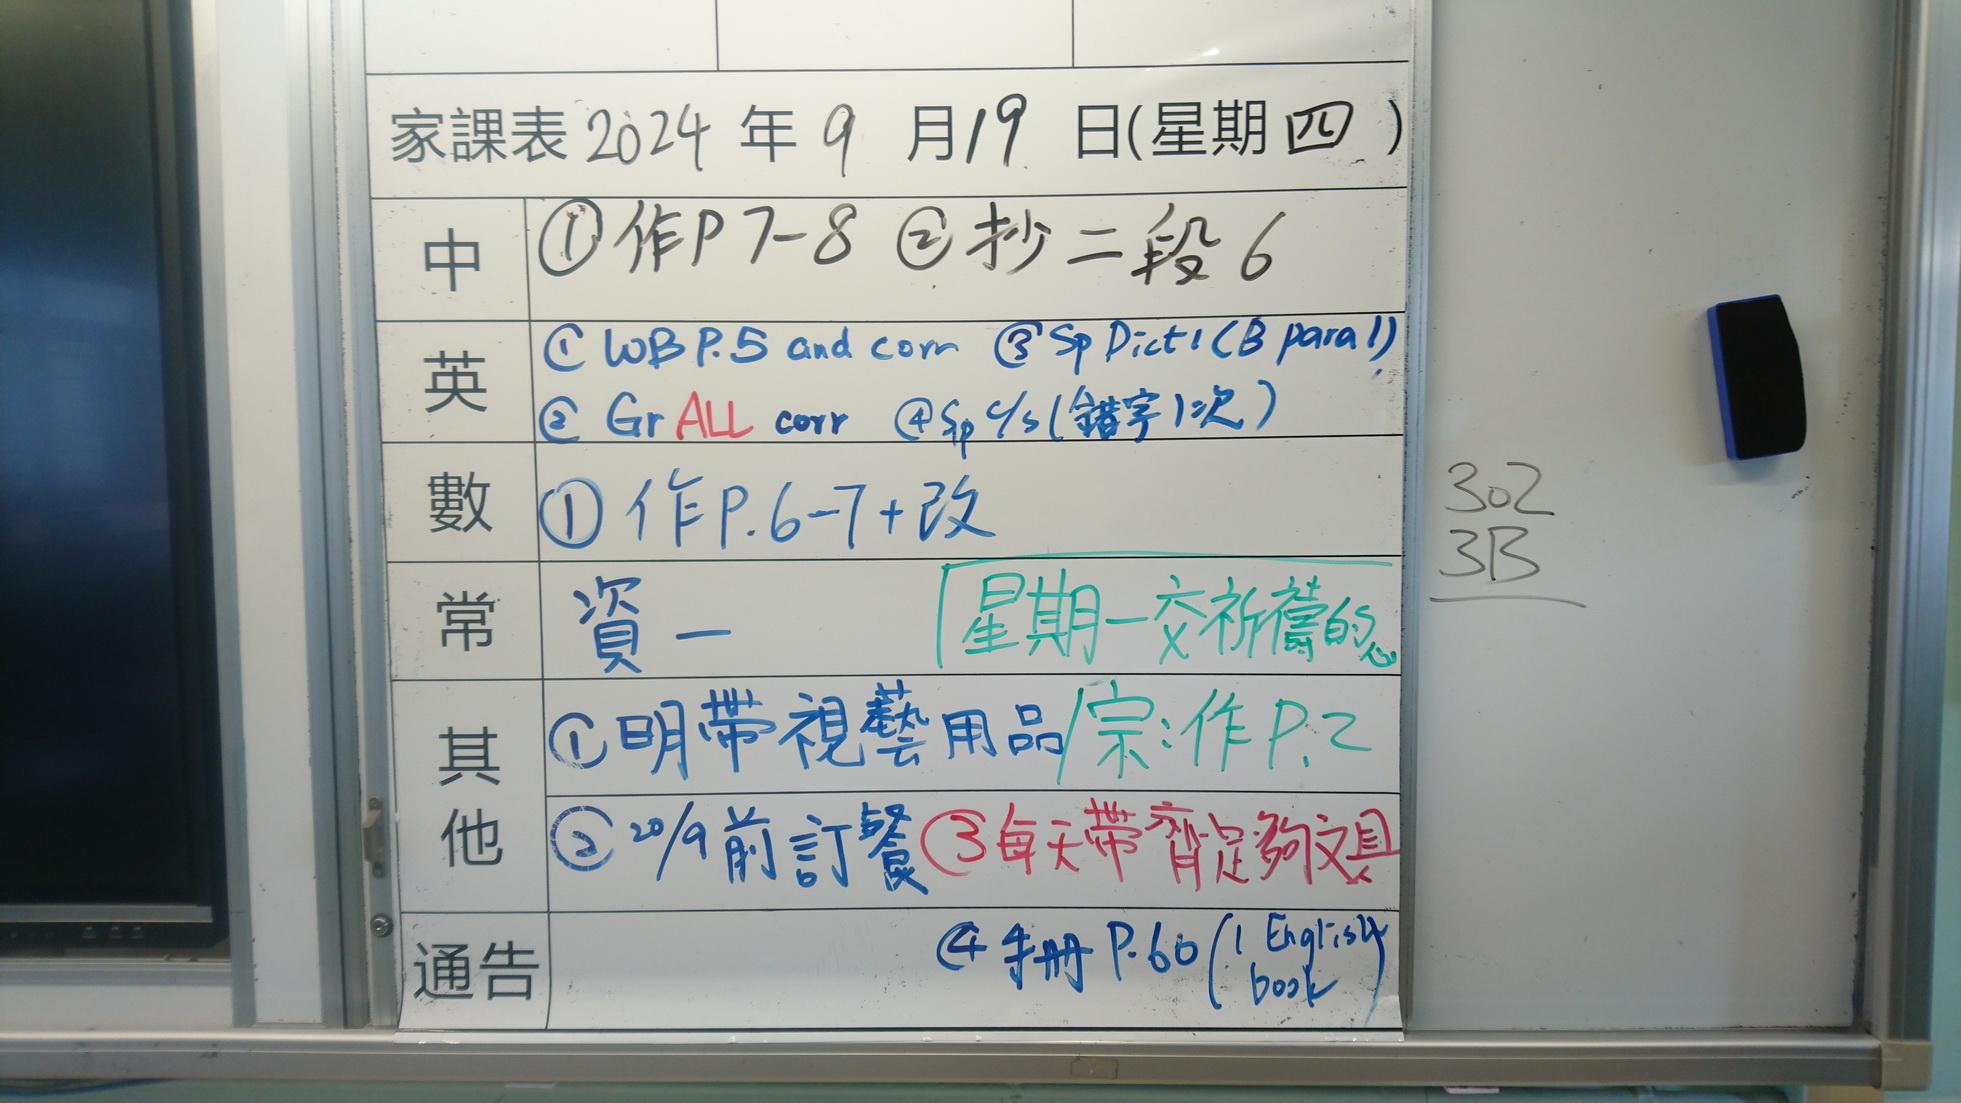 家課表 2024 年 9 月 19 日(星期四)
中 ①作P 7-8 ②抄二段6
英 ① WB P.5 and corr ③ Sp Dict 1 (B para 1)
② Gr ALL corr ④ Sp c/s (錯字1次)
數 ① 作P.6-7+改
302
3B
常 資一 星期一交祈禱的心
其他 ①明帶視藝用品/宗:作P.2
② 20/9前訂餐 ③每天帶齊足夠文具
通告 ④ 手冊 P.60 (1 English book)